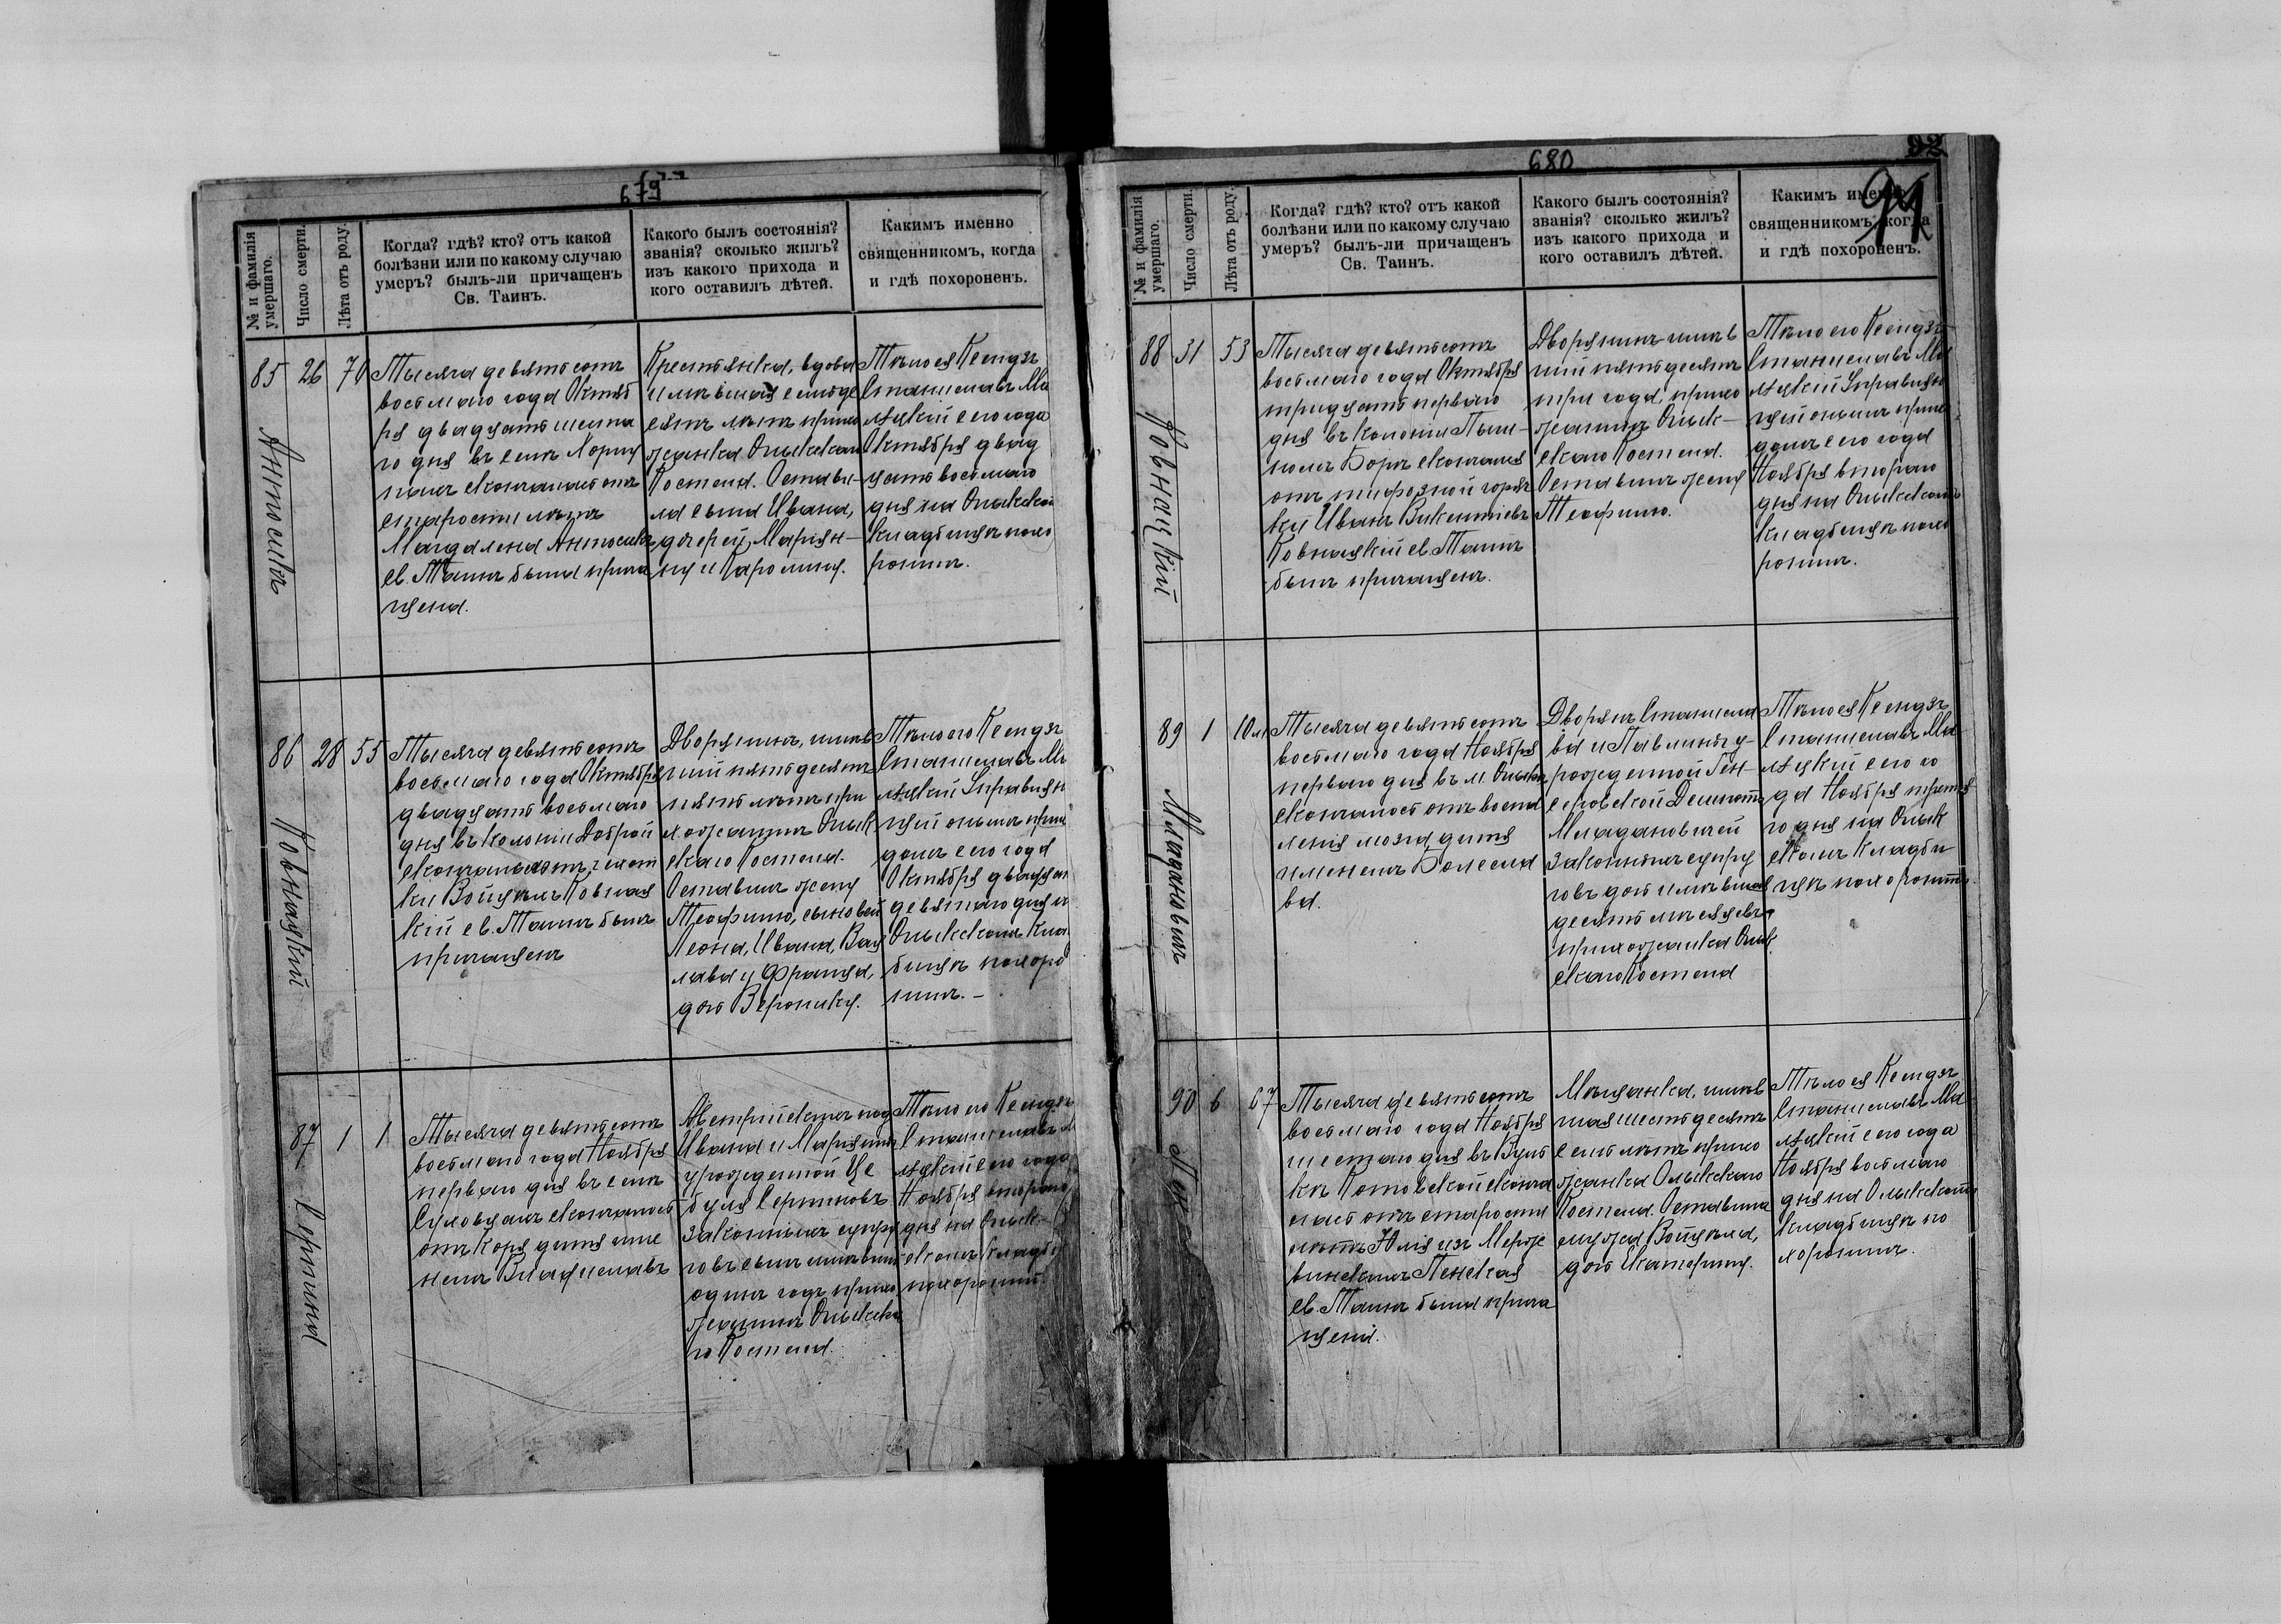 679
№ и фамилія умершаго.
Число смерти.
Лѣта отъ роду.
Когда? гдѣ? кто? отъ какой
болѣзни или по какому случаю
умеръ? былъ-ли причащенъ
Св. Таинъ.
Какого былъ состоянія?
званія? сколько жилъ?
изъ какого прихода и
кого оставилъ дѣтей.
Какимъ именно
священникомъ, когда
и гдѣ похороненъ.
85
26
70
Тысяча девятьсотъ
восьмаго года Октяб
ря двадцать шеста
го дня въ селѣ
скончалась отъ
старости лѣтъ
Магдалена
св. Таинъ была прича
щена.
Крестьянка, вдова
имѣвшая семьде
сятъ лѣтъ прихо
жанка Олыкскаго
Костела. Остави-
ла сына Ивана,
дочерей, Маріян-
ну и Каролину.
Тѣло ея Ксендзъ
Станиславъ
сего года
Октября двад
цать восьмаго
дня на Олыкском
кладбищѣ похо
ронилъ.
86
28
55
Ковнацкий
Тысяча девятьсотъ
восьмаго года Октября
двадцать восьмаго
дня въ колоніи Доброй
скончался отъ чахот
ки Войцѣхъ Ковнац
кій св. Таинъ былъ
причащенъ
Дворянинъ, имѣв
шій пятьдесятъ
пять лѣтъ при
хожанинъ Олык
скаго Костела.
Оставилъ жену
Теофилю, сыновей
Леона, Ивана, Вац
лава и Франца,
дочь Веронику.
Тѣло его Ксендзъ
Станиславъ
Управляю
щій онымъ прихо
домъ сего года
Октября двадцат
девятаго дня н
Олыкскомъ кла
бищѣ похоро
нилъ. –
87
1
1
Тысяча девятьсотъ
восьмаго года Ноября
перваго дня въ селѣ
скончалось
отъ кори дитя име
немъ Владиславъ
Австрійскихъ под
Ивана и Маріянны
урожденной Це
буля
законныхъ супру
говъ сынъ имѣвшій
одинъ годъ прихо
жанинъ Олыкска
го Костела.
Тѣло его Ксендзъ
Станиславъ М
сего года
Ноября втораго
дня на Олык-
скомъ кладби
похоронилъ
680
92
№ и фамилія умершаго.
Число смерти.
Лѣта отъ роду.
Когда? гдѣ? кто? отъ какой
болѣзни или по какому случаю
умеръ? былъ-ли причащенъ
Св. Таинъ.
Какого былъ состоянія?
званія? сколько жилъ?
изъ какого прихода и
кого оставилъ дѣтей.
Какимъ именно
священникомъ, когда
и гдѣ похороненъ.
88
31
53
Ковнацкій
Тысяча девятьсотъ
восьмаго года Октября
тридцать перваго
дня въ колоніи
скончался
отъ тифозной горяч
ки Иванъ Викентіевъ
Ковнацкій св. Таинъ
былъ причащенъ.
Дворянинъ имѣв
шій пятьдесятъ
три года, прихо
жанинъ Олык-
скаго Костела.
Оставилъ жену
Теофилю.
Тѣло его Ксендзъ
Станиславъ
Управляю
щій онымъ прихо
домъ сего года
Ноября втораго
дня на Олыкскомъ
кладбищѣ похо
ронилъ.
89
1
10 м
Младановичъ
Тысяча девятьсотъ
восьмаго года Ноября
перваго дня въ м. Олыкѣ
скончалось отъ воспа
ленія мозга дитя
именемъ Болесла
ва.
Дворянъ Станисла
ва и Павлины у-
рожденной
Младановичей
законныхъ супру
говъ дочь имѣвшая
десять мѣсяцевъ
прихожанка Олык
скаго Костела
Тѣло ея Ксендзъ
Станиславъ
сего го
да Ноября третья
го дня на Олык
скомъ кладби
щѣ похоронилъ.
90
6
67
Тысяча девятьсотъ
восьмаго года Ноября
шестаго дня въ Вуль
кѣ Котовской сконча
лась отъ старости
лѣтъ Юлія изъ
св. Таинъ была прича
щена.
Мѣщанка, имѣв
шая шестьдесятъ
семь лѣтъ прихо
жанка Олыкскаго
Костела. Оставила
мужа Войцѣха,
дочь Екатерину.
Тѣло ея Ксендзъ
Станиславъ
сего года
Ноября восьмаго
дня на Олыкскомъ
кладбищѣ по
хоронилъ.